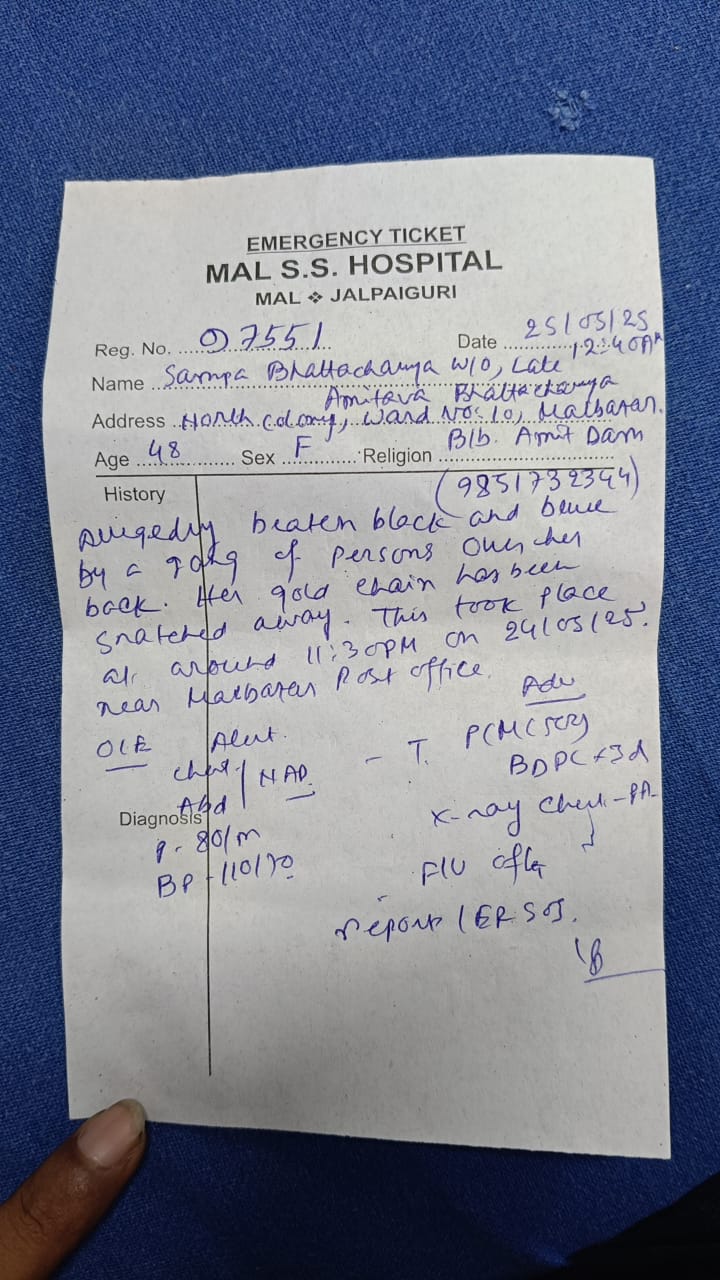 EMERGENCY TICKET
MAL S.S. HOSPITAL
MAL ❖ JALPAIGURI
Reg. No. 07551 Date 25/05/25
12:40AM
Name Sampa Bhattacharya W/O, Late
Amitava Bhattacharya
Address North Colony, Ward No: 10, Malbazar.
Age 48 Sex F Religion B/b. Amit Dam
History (9851732344)
beaten black and
by a gang of persons over her
back. Her gold chain has been
snatched away. This took place
at around 11:30PM on 24/05/25.
near Malbazar Post office.
O/E Alert. Adv
Chest / NAD. - T. PCM (500)
Abd BDPC x 3d
Diagnosis
P - 80/m X-ray Chest - PA
BP - 110/70 F/U after
report